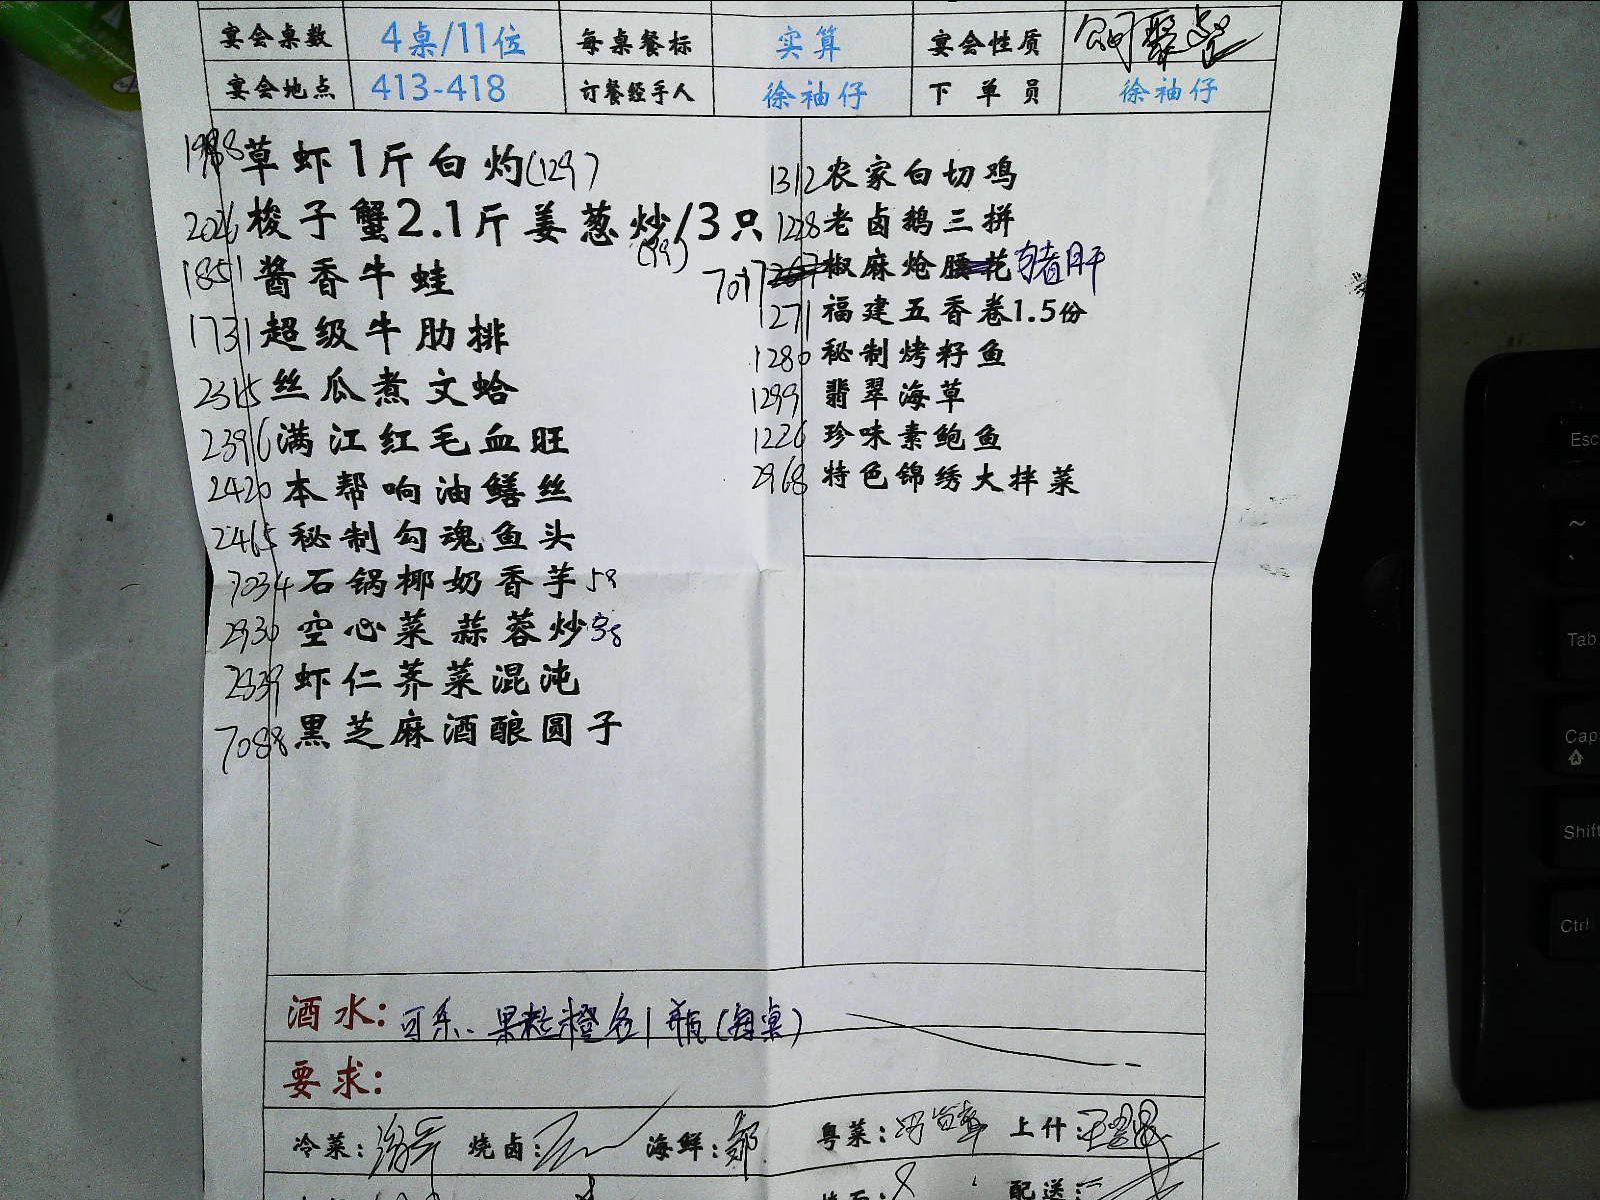 宴会桌数 4桌/11位 每桌餐标 实算 宴会性质
宴会地点 413-418 订餐经手人 徐袖仔 下单员 徐袖仔
1988 草虾1斤白灼(129)
2026 梭子蟹2.1斤姜葱炒/3只
(99)
1851 酱香牛蛙
1731 超级牛肋排
2315 丝瓜煮文蛤
2396 满江红毛血旺
2420 本帮响油鳝丝
2465 秘制勾魂鱼头
7034 石锅椰奶香芋58
2930 空心菜蒜蓉炒
2339 虾仁荠菜混沌
7088 黑芝麻酒酿圆子
1312 农家白切鸡
1228 老卤鹅三拼
7017 椒麻炝腰花 猪肝
1271 福建五香卷1.5份
1280 秘制烤籽鱼
1299 翡翠海草
1226 珍味素鲍鱼
2968 特色锦绣大拌菜
酒水: 可乐、果粒橙各1瓶(每桌)
要求:
冷菜: 烧卤: 海鲜: 郭 粤菜: 上什:
配送:
Esc
~
Tab
Cap
Shift
Ctrl